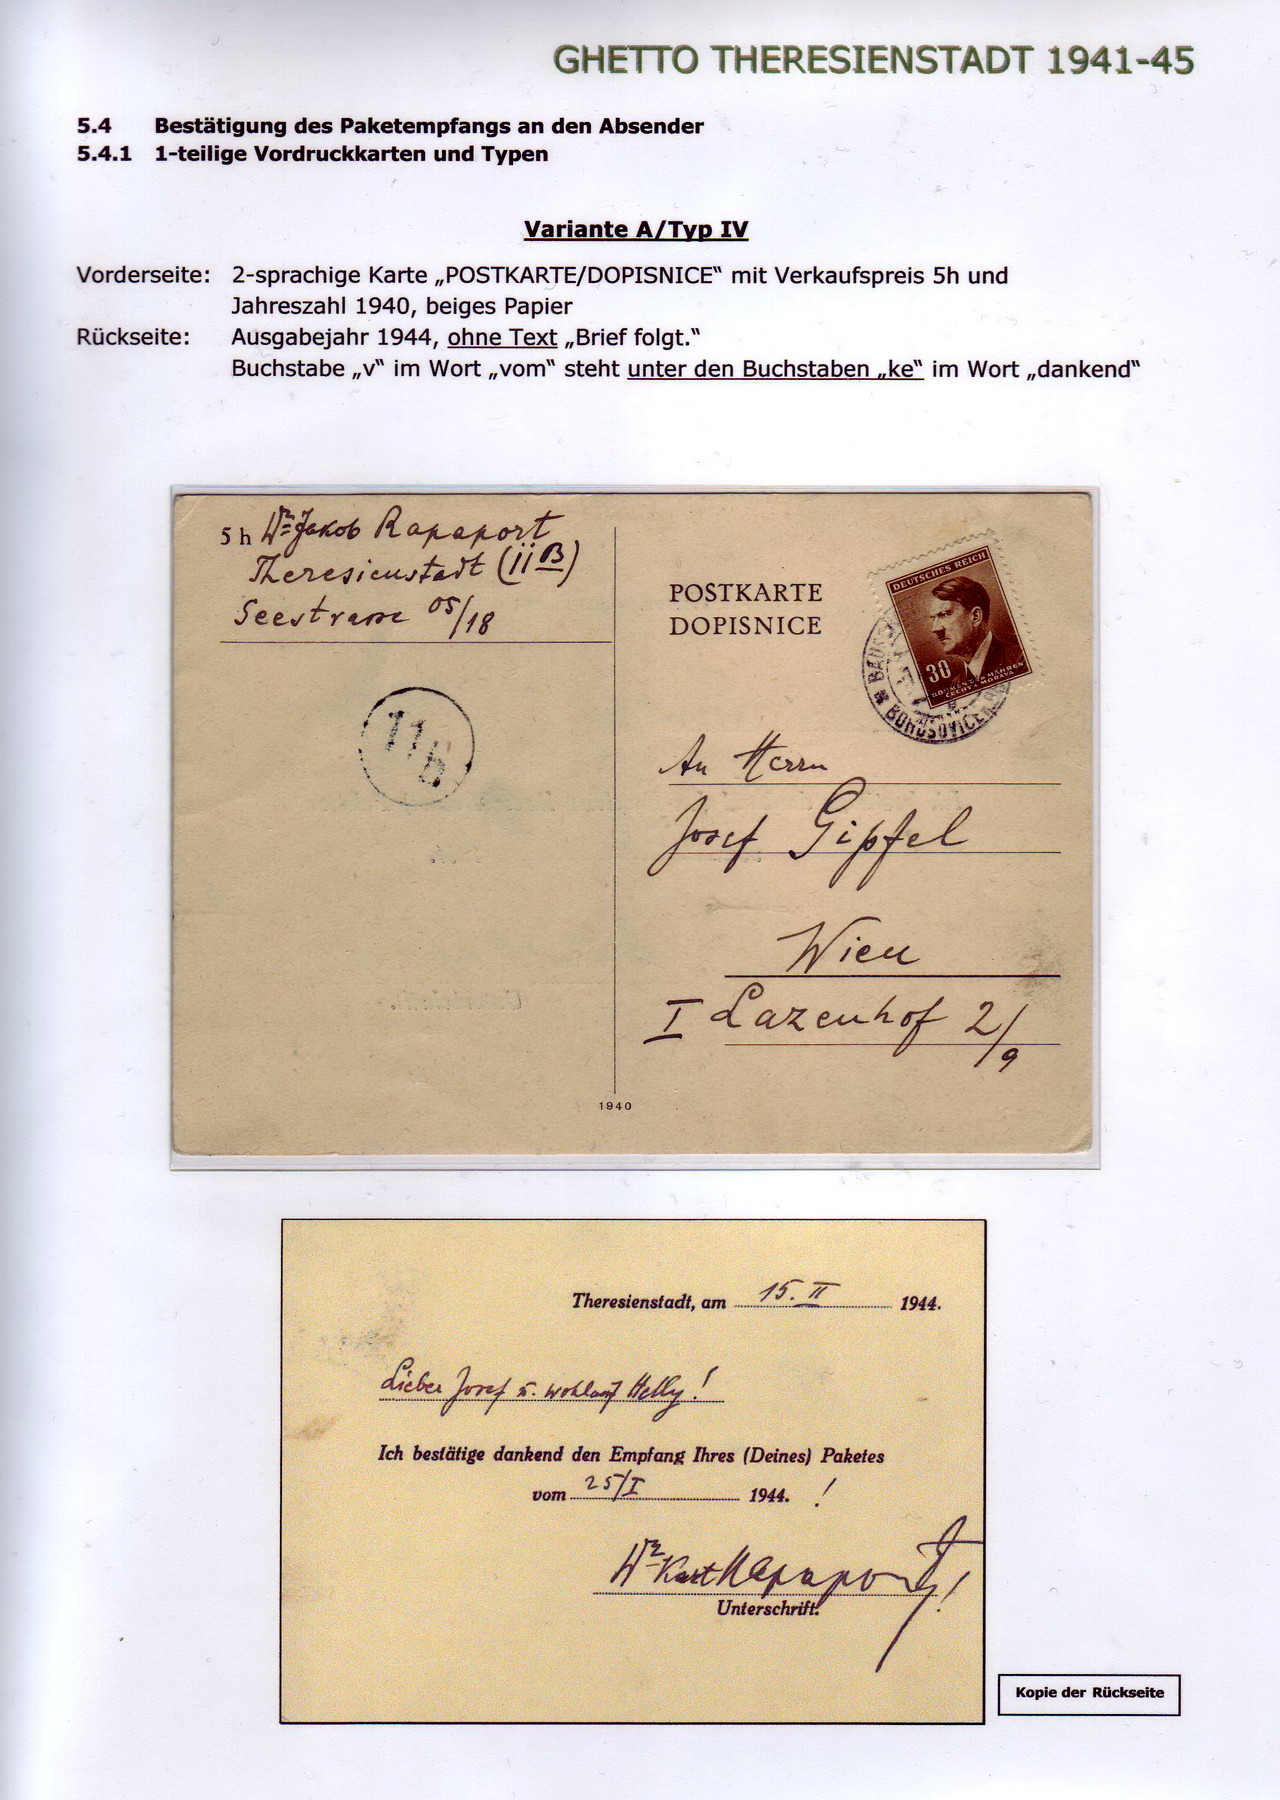 GHETTO THERESIENSTADT 1941-45
5.4 Bestätigung des Paketempfangs an den Absender
5.4.1 1-teilige Vordruckkarten und Typen
Variante A/Typ IV
Vorderseite: 2-sprachige Karte „POSTKARTE/DOPISNICE“ mit Verkaufspreis 5h und
Jahreszahl 1940, beiges Papier
Rückseite: Ausgabejahr 1944, ohne Text „Brief folgt.“
Buchstabe „v“ im Wort „vom“ steht unter den Buchstaben „ke“ im Wort „dankend“
5 h Jakob Rapaport
Theresienstadt (II B)
Seestrasse 05/18
POSTKARTE
DOPISNICE
DEUTSCHES REICH
30
BÖHMEN UND MÄHREN
ČECHY A MORAVA
BOHUŠOVICE
116
An Herrn
Josef Gipfel
Wien
I Lazenhof 2/9
1940
Theresienstadt, am 15. II 1944.
Lieber Josef u. Helly!
Ich bestätige dankend den Empfang Ihres (Deines) Paketes
vom 25/I 1944. !
Rapaport!
Unterschrift.
Kopie der Rückseite